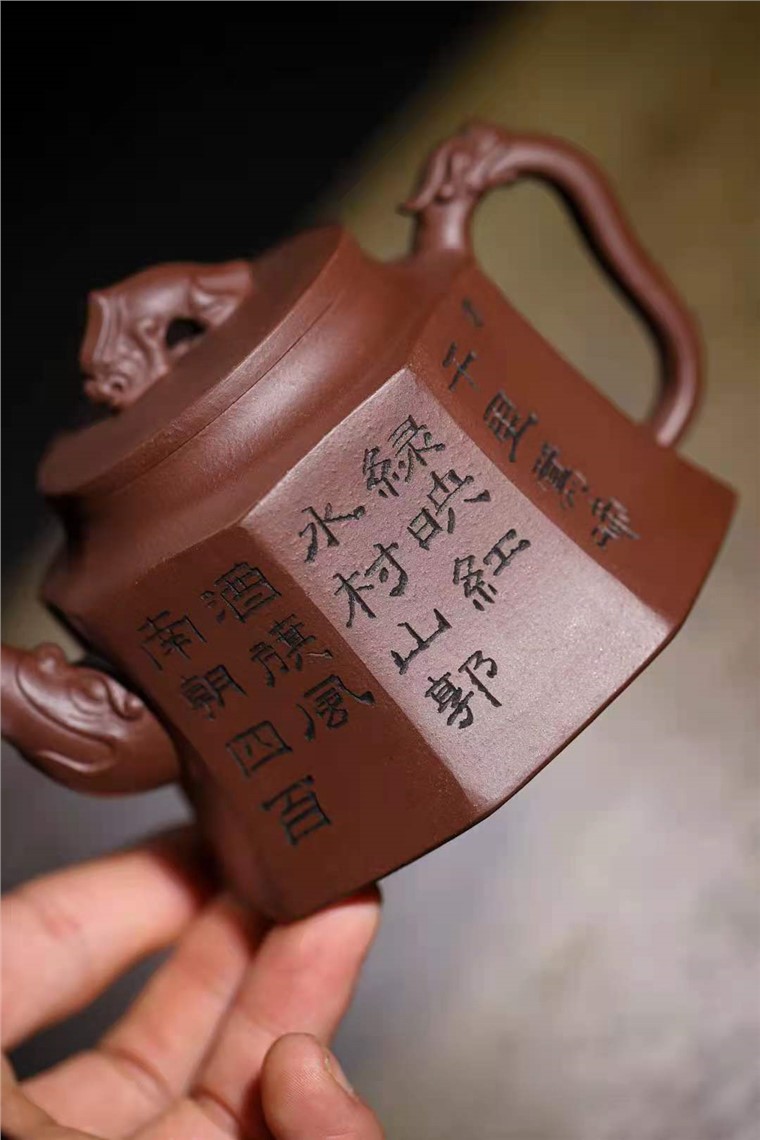 千里鶯啼
緑映紅
水村山郭
酒旗風
南朝四百